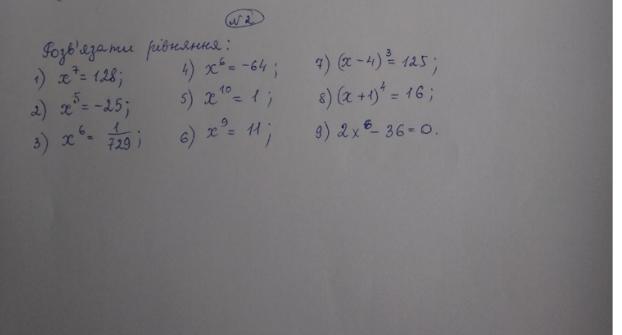 №2
Розв'язати рівняння:
1) x⁷ = 128;
2) x⁵ = -25;
3) x⁶ = 1/729;
4) x⁶ = -64;
5) x¹⁰ = 1;
6) x⁹ = 11;
7) (x-4)³ = 125;
8) (x+1)⁴ = 16;
9) 2x⁶ - 36 = 0.